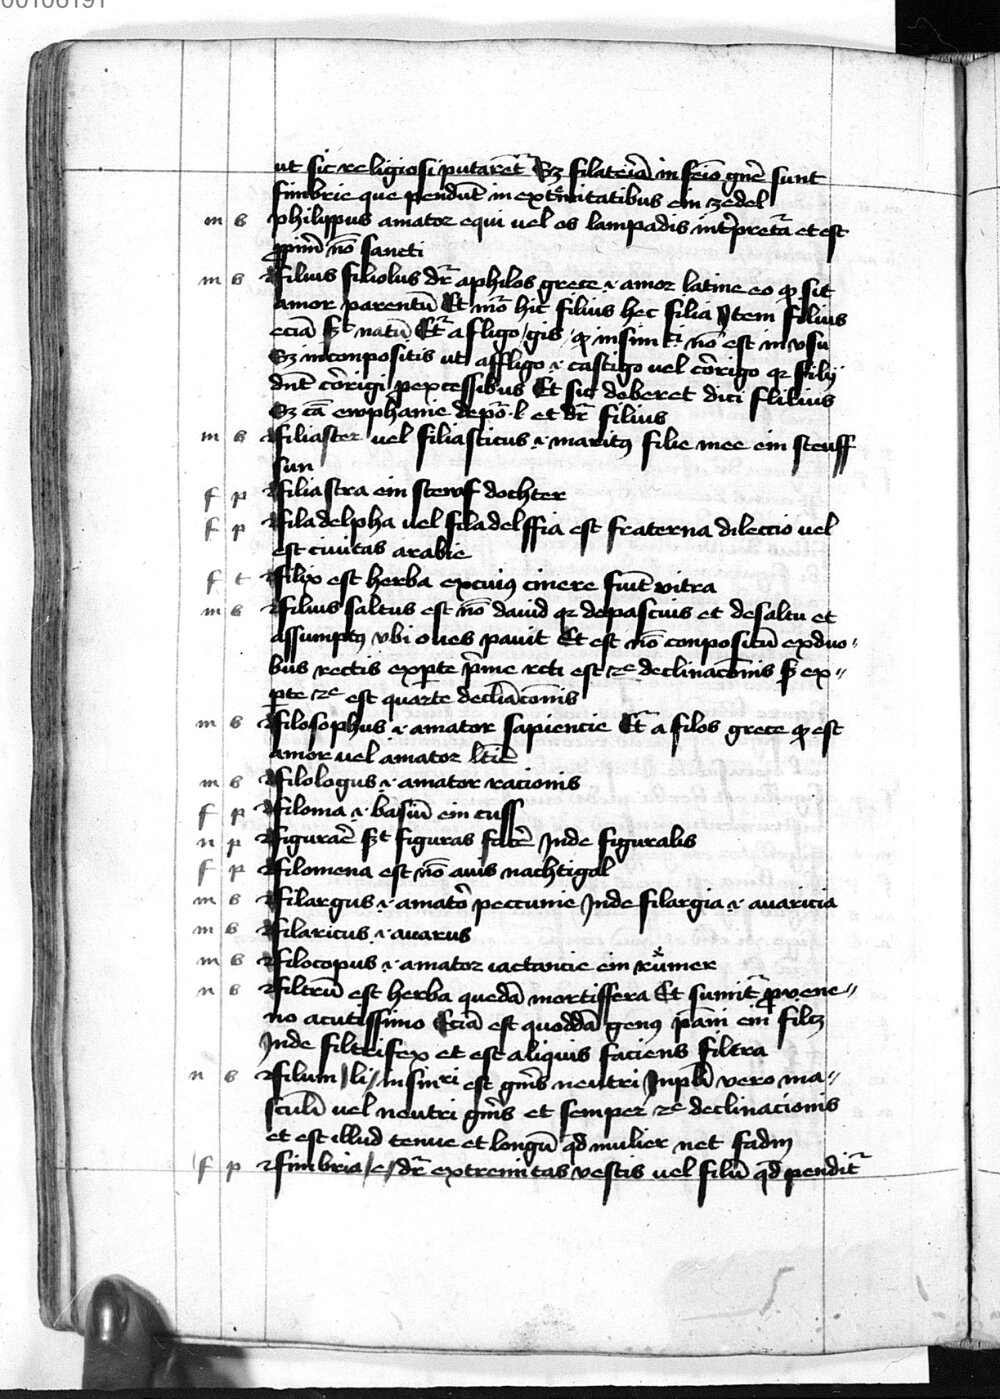 00106191
ut sic religiosi putarēt Sz filateria in feīo gnē sunt
fimbrie que pendūt in extremitatibus ein zedel
m s philippus amator equi vel os lampadis intp̄retat᷑ et est
ꝓpriū nō sancti
m s filius filiolus dr̄ a philos grece .i. amor latine eo ꝙ sit
amor parentū Et inō hic filius hec filia Item filius
eciā st natū Et᷑ a fligo /gis/ ꝙ in simᵗⁱ nō est in vsu
Sz in compositis ut affligo .i. castigo vel cōrigo qz filij
dnt cōrigi p excessibus Et sic deberet dici flilius
Sz cā ewphanie depō l et dr̄ filius
m s filiaster vel filiasticus .i. maritꝰ filie mee ein steuff
sun
f p filiastra ein steuf dochter
f p filadelpha vel filadelffia est fraterna dileccio vel
est ciuitas arabie
f t filix est herba ex cuiꝰ cinere fiūt vitra
m s filius saltus est nō dauid qz de pascuis et de saltu et
assumptꝰ vbi oues pauit Et est nō compositū ex duo
bus rectis ex pte p̄me recti est 2e declinacōnis s ex
pte 2e est quarte declīacōnis
m s filosophus .i. amator sapiencie Et᷑ a filos grece ꝙ est
amor vel amator ltīe
m s filologus .i. amator racionis
f p filoma .i. basiū ein cuss
n p figurarē st figuras facē Inde figuralis
f p filomena est nō auis nachtigal
m s filargus .i. amatōr peccunie Inde filargia .i. auaricia
m s filaricus .i. auarus
m s filocopus .i. amator iactancie ein růmer
n s filtrū est herba quedā mortiffera Et sumit᷑ ꝓ vene
no acutissimo Eciā est quoddā genꝰ pāni ein filcz
Inde filtrifex et est aliquis faciens filtra
n s filum /li/ in sinᵍʳⁱ est gn̄is neutri In plī vero ma
sculī vel neutri gn̄is et semper 2e declinacionis
et est illud tenue et longū qd mulier net fadm
f p fimbria /e/ dr̄ extremitas vestis vel filū qd pendit᷑